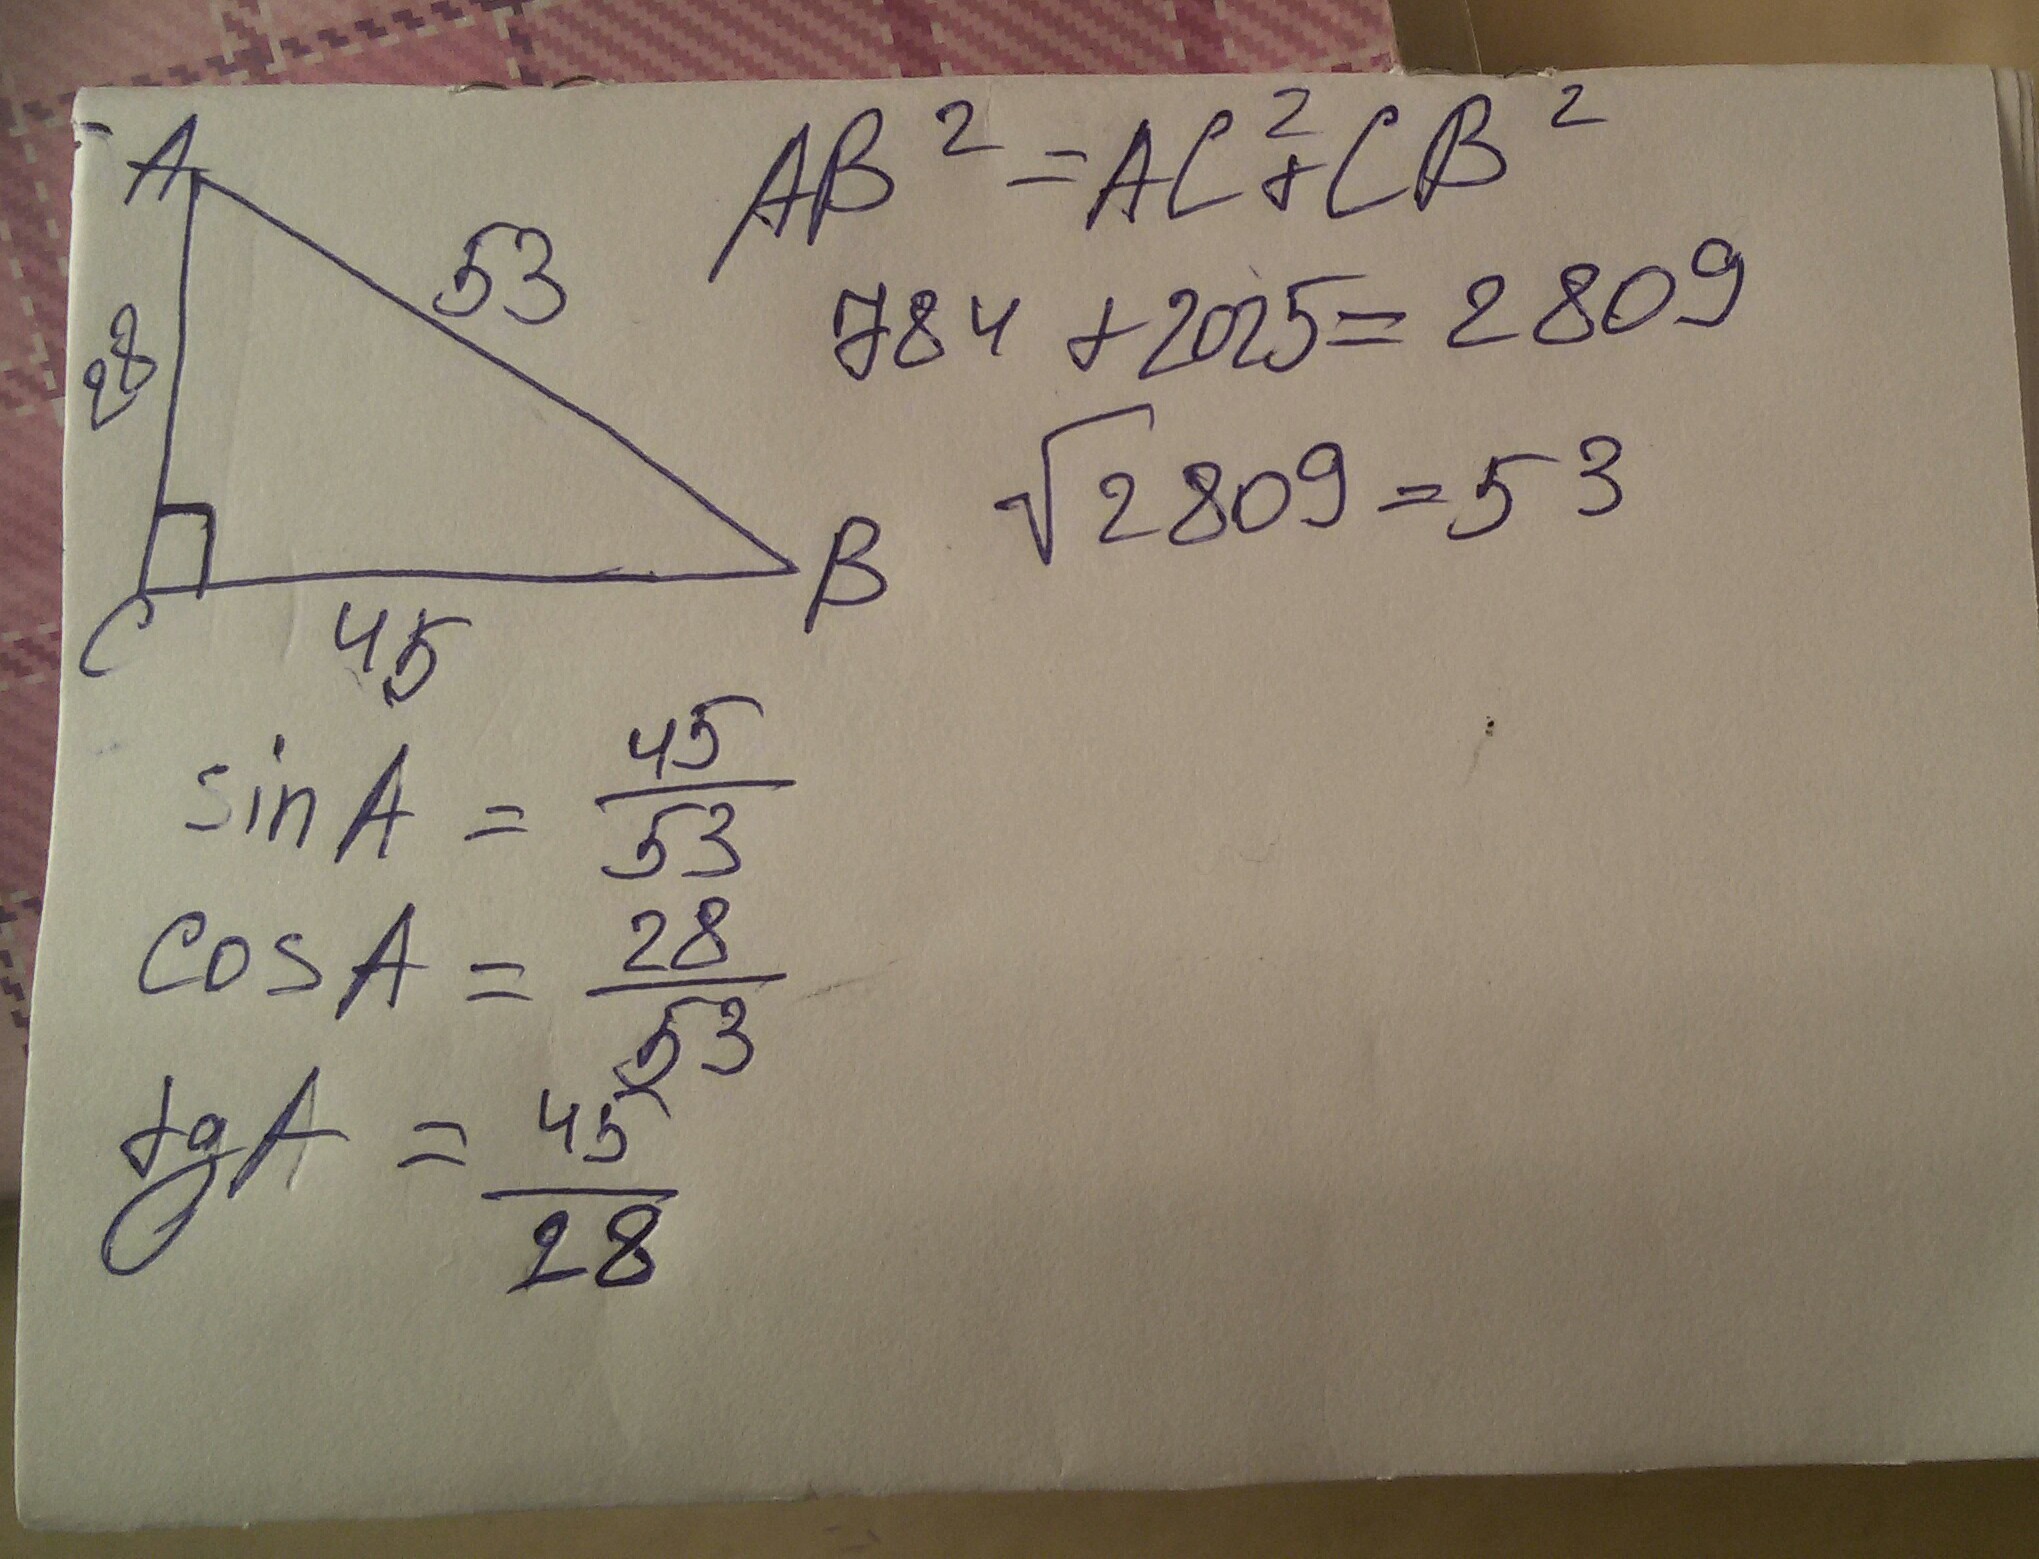 A
53
28
C
45
B
AB² = AC² + CB²
784 + 2025 = 2809
√2809 = 53
sin A = 45/53
cos A = 28/53
tg A = 45/28